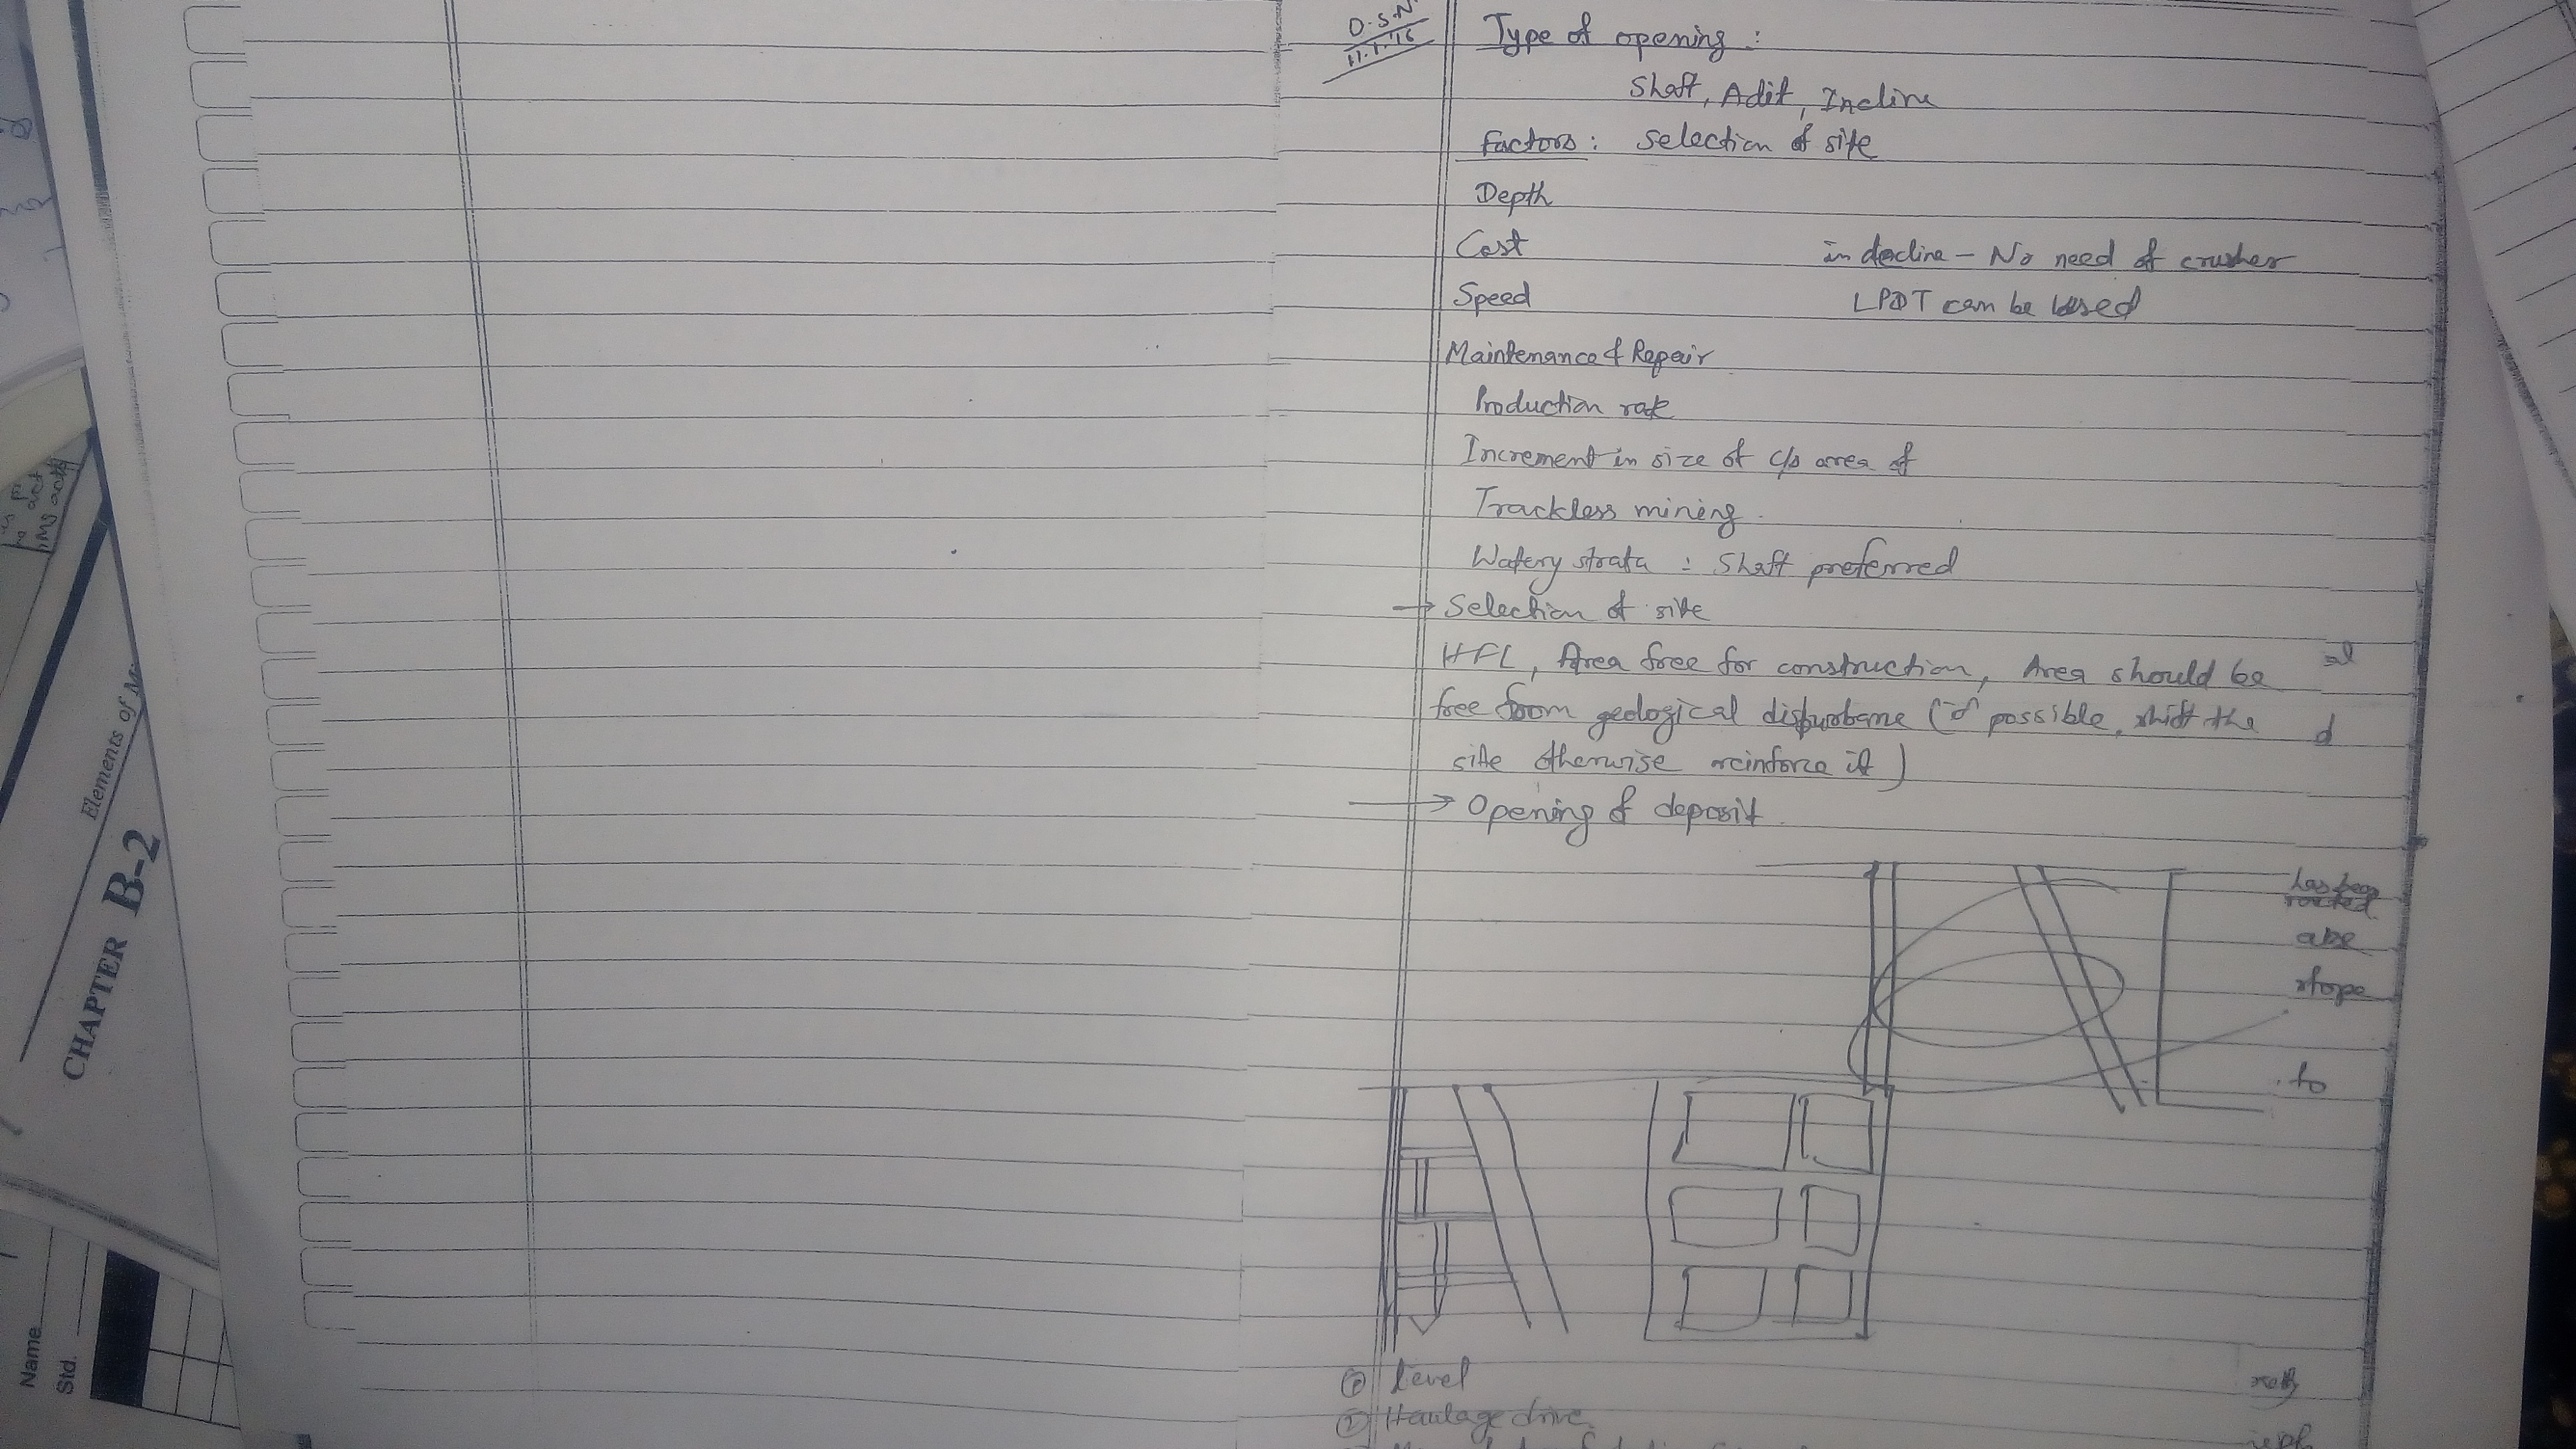 D.S.N.
11.1.'16
Type of opening :
Shaft, Adit, Incline
Factors : Selection of site
Depth
Cost
in decline - No need of crusher
Speed
LPDT can be used
Maintenance & Repair
Production rate
Increment in size of c/s area of
Trackless mining.
Watery strata : Shaft preferred
→ Selection of site
HFL, Area free for construction, Area should be
free from geological disturbame (if possible, shift the
site otherwise reinforce it)
→ Opening of deposit.
has been
are
stope
to
① level
② Haulage drive
Elements of M
CHAPTER B-2
Name
Std.